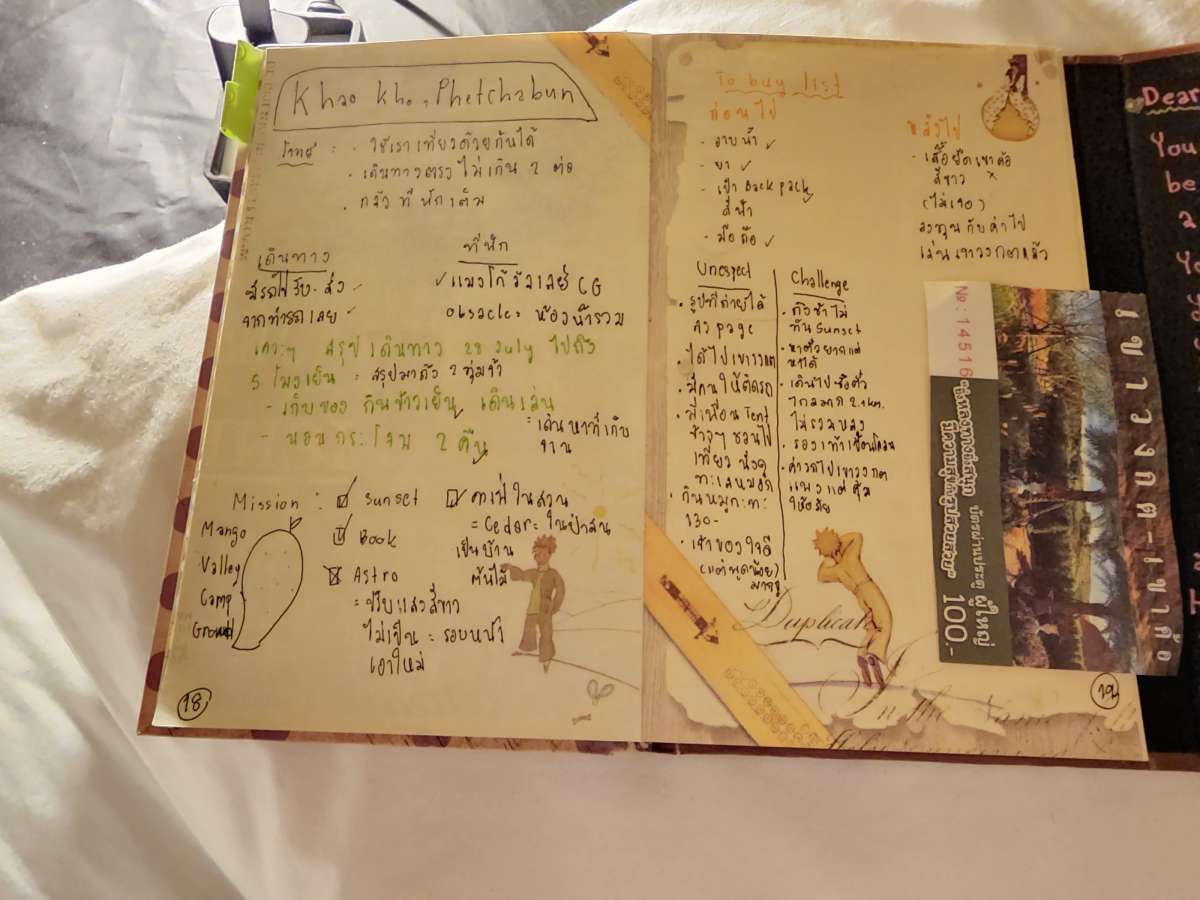 Khao Kho, Phetchabun
โจทย์ : - ใช้เราเที่ยวด้วยกันได้
- เดินทางตรง ไม่เกิน 2 ต่อ
- กลัวที่พักเต็ม
เดินทาง
มีรถไปรับ-ส่ง ✓
จากท่ารถเลย ✓
ที่พัก
✓ แมงโก้วัลเลย์ CG
obsacle = ห้องน้ำรวม
สรุปเดินทาง 28 July ไปถึง
5 โมงเย็น = สรุปมาถึง 2 ทุ่มจ้า
- เก็บของ กินข้าวเย็น เดินเล่น
= เดินหาที่เก็บ
จาน
- นอนกระโจม 2 คืน
Mission : ☑ Sunset
☑ คาเฟ่ในสวน
= Cedar = ในป่าสน
เป็นบ้าน
ต้นไม้
☑ Book
☒ Astro
= ปรับแสงสีขาว
ไม่เป็น = รอบหน้า
เอาใหม่
Mango
Valley
Camp
Ground
18
To buy list
ก่อนไป
- อาบน้ำ ✓
- ยา ✓
- เป้า Back pack
- มือถือ ✓
หลังไป
- เสื้อยืดเขาค้อ
สีขาว ×
(ไม่เจอ)
ลงทุนกับค่าไป
เล่นเขาวงกตแล้ว
Unexpect
• รูปที่ถ่ายได้
ลง page
• ได้ไปเขาวงกต
• มีคนให้ติดรถ
• มีเพื่อน Tent
ข้างๆ ชวนไป
เที่ยว นั่งดู
ทะเลหมอก
• กินหมูกะทะ
130-
• เจ้าของใจดี
(แต่พูดน้อย)
Challenge
• กลัวช้าไม่
ทัน Sunset
• หาตั๋วยากแต่
หาได้
• เดินไปซื้อตั๋ว
ไกลมาก 2.1km.
ไม่รวมหลง
• รองเท้าเปื้อนโคลน
• ค่ารถไปเขาวงกต
แพงแต่คุ้ม
ให้อภัย
Duplicata
19
No: 14516
บัตรผ่านประตู ผู้ใหญ่
100.-
เขาวงกต-เขาค้อ
Dear
You
be
a